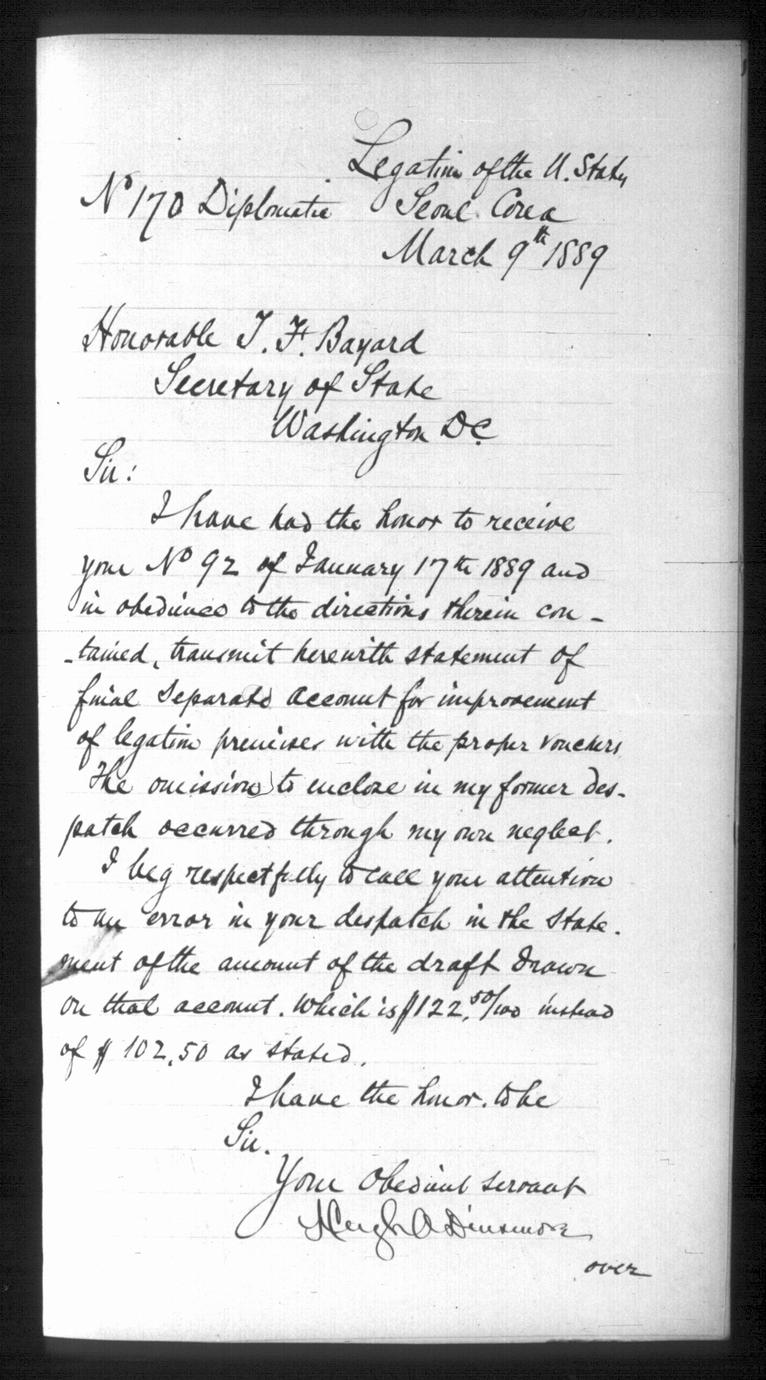 Legation of the U. States
No 170 Diplomatic Seoul Corea
March 9th 1889
Honorable T. F. Bayard
Secretary of State
Washington DC
Sir:
I have had the honor to receive
your No 92 of January 17th 1889 and
in obedience to the directions therein con-
-tained, transmit herewith statement of
final separate account for improvement
of legation premises with the proper vouchers
The omission to enclose in my former des-
patch occurred through my own neglect.
I beg respectfully to call your attention
to an error in your despatch in the state-
ment of the amount of the draft drawn
on that account. Which is $122.50/100 instead
of $102.50 as stated.
I have the honor. to be
Sir.
Your Obedient servant
Hugh A Dinsmore
over